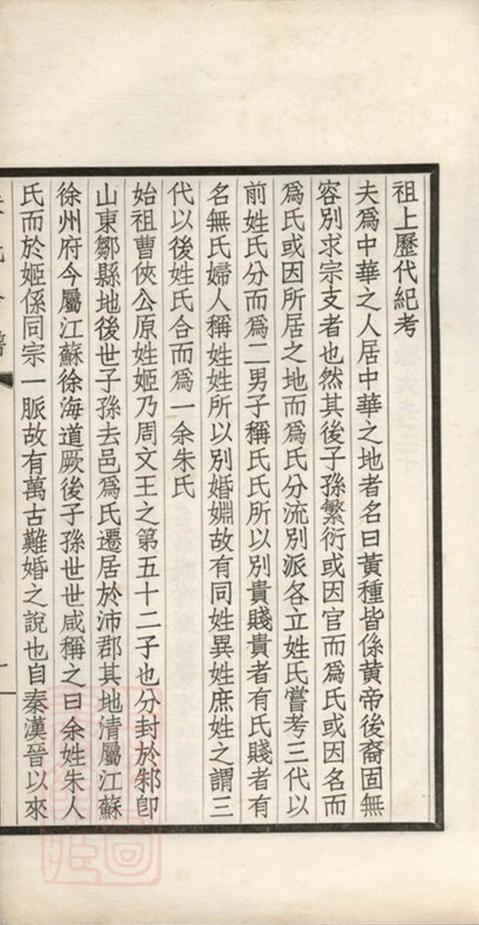 祖上歷代紀考
夫爲中華之人居中華之地者名曰黃種皆係黃帝後裔固無
容別求宗支者也然其後子孫繁衍或因官而爲氏或因名而
爲氏或因所居之地而爲氏分流別派各立姓氏嘗考三代以
前姓氏分而爲二男子稱氏氏所以別貴賤貴者有氏賤者有
名無氏婦人稱姓姓所以別婚姻故有同姓異姓庶姓之謂三
代以後姓氏合而爲一余朱氏
始祖曹俠公原姓姬乃周文王之第五十二子也分封於邾卽
山東鄒縣地後世子孫去邑爲氏遷居於沛郡其地清屬江蘇
徐州府今屬江蘇徐海道厥後子孫世世咸稱之曰余姓朱人
氏而於姬係同宗一脈故有萬古難婚之說也自秦漢晉以來